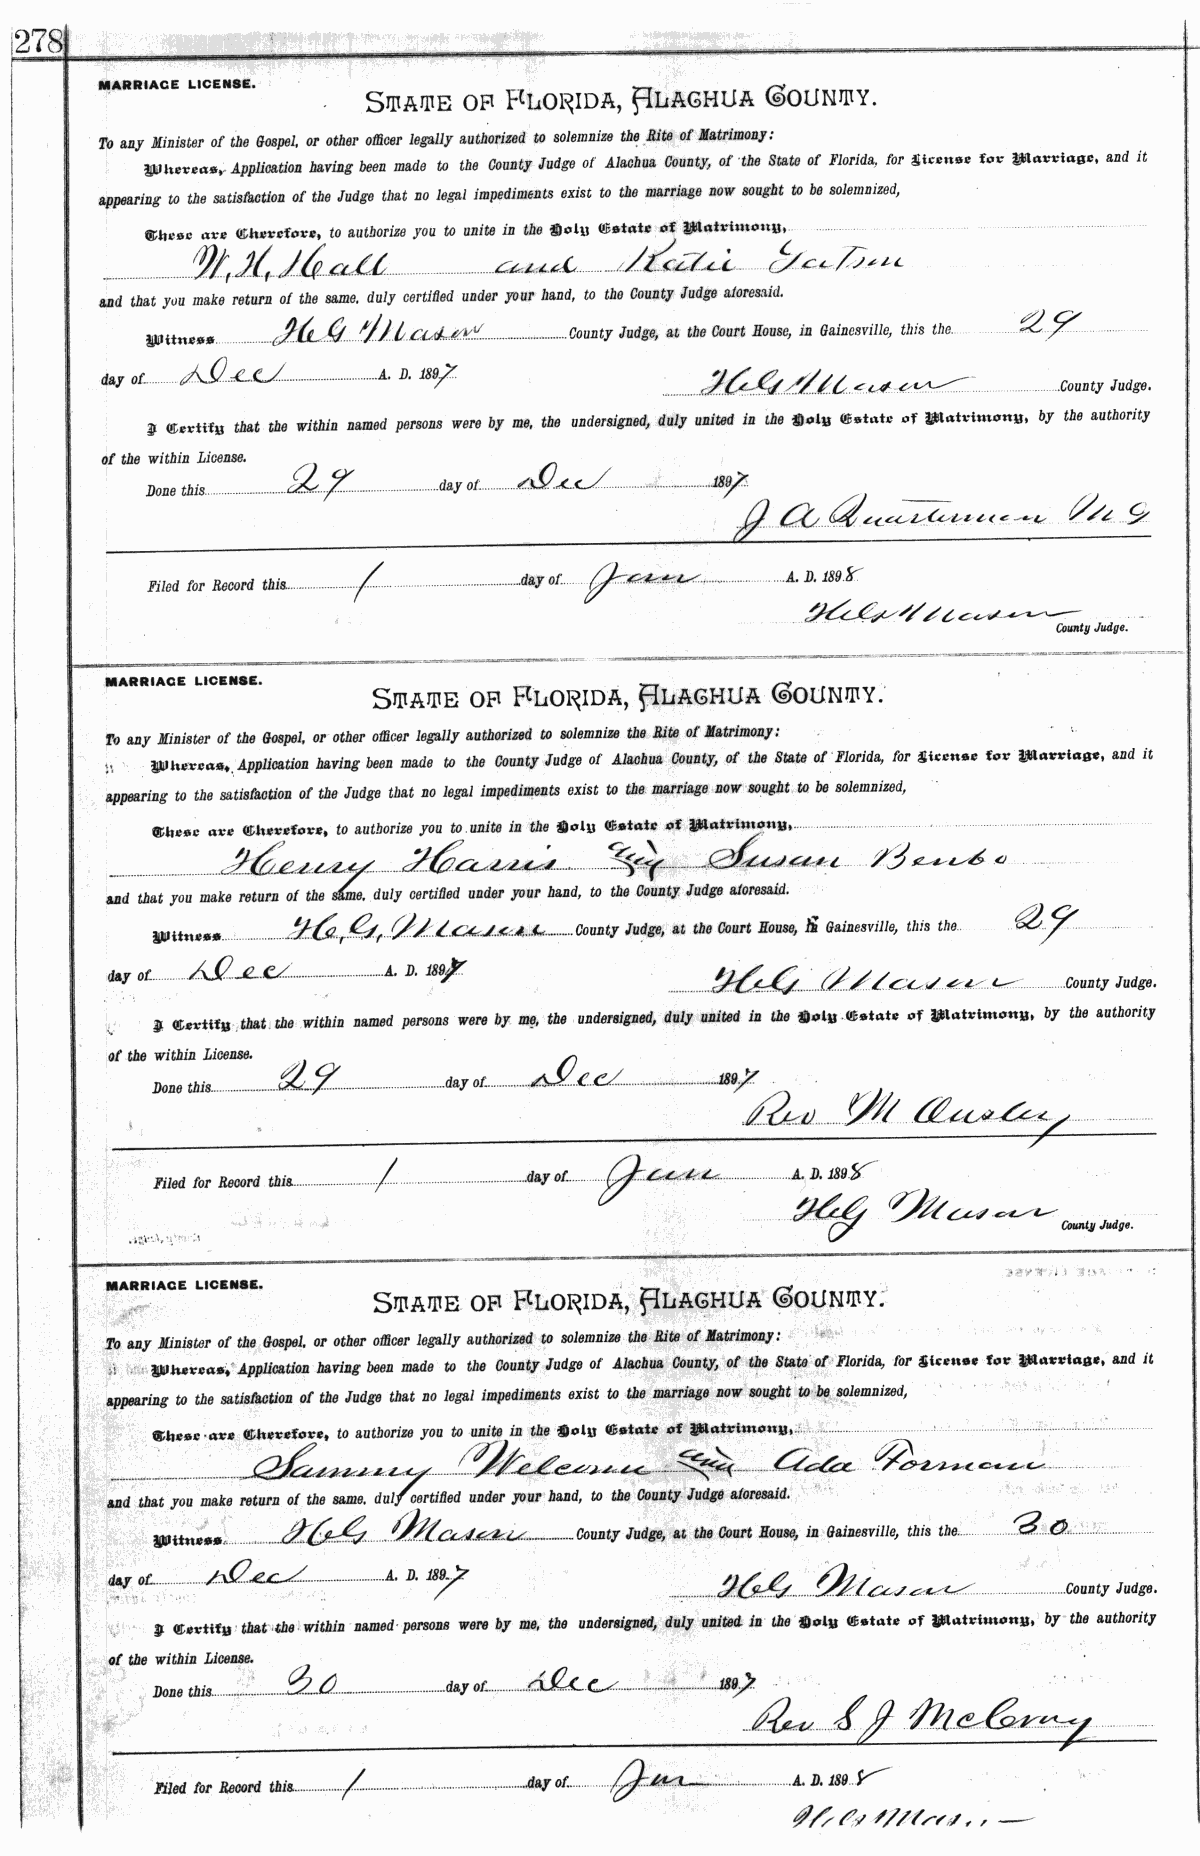 278
MARRIAGE LICENSE.
STATE OF FLORIDA, ALACHUA COUNTY.
To any Minister of the Gospel, or other officer legally authorized to solemnize the Rite of Matrimony:
Whereas, Application having been made to the County Judge of Alachua County, of the State of Florida, for License for Marriage, and it
appearing to the satisfaction of the Judge that no legal impediments exist to the marriage now sought to be solemnized,
These are Therefore, to authorize you to unite in the Holy Estate of Matrimony,
W. H. Hall and Katie
and that you make return of the same, duly certified under your hand, to the County Judge aforesaid.
Witness H G Mason County Judge, at the Court House, in Gainesville, this the 29
day of Dec A. D. 1897
H G Mason County Judge.
I Certify that the within named persons were by me, the undersigned, duly united in the Holy Estate of Matrimony, by the authority
of the within License.
Done this 29 day of Dec 1897
J A Quarterman M G
Filed for Record this 1 day of Jan A. D. 1898
H G Mason
County Judge.
MARRIAGE LICENSE.
STATE OF FLORIDA, ALACHUA COUNTY.
To any Minister of the Gospel, or other officer legally authorized to solemnize the Rite of Matrimony:
Whereas, Application having been made to the County Judge of Alachua County, of the State of Florida, for License for Marriage, and it
appearing to the satisfaction of the Judge that no legal impediments exist to the marriage now sought to be solemnized,
These are Therefore, to authorize you to unite in the Holy Estate of Matrimony,
Henry Harris and Susan Benbo
and that you make return of the same, duly certified under your hand, to the County Judge aforesaid.
Witness H. G. Mason County Judge, at the Court House, in Gainesville, this the 29
day of Dec A. D. 1897
H G Mason County Judge.
I Certify that the within named persons were by me, the undersigned, duly united in the Holy Estate of Matrimony, by the authority
of the within License.
Done this 29 day of Dec 1897
Rev M Ousley
Filed for Record this 1 day of Jan A. D. 1898
H G Mason
County Judge.
MARRIAGE LICENSE.
STATE OF FLORIDA, ALACHUA COUNTY.
To any Minister of the Gospel, or other officer legally authorized to solemnize the Rite of Matrimony:
Whereas, Application having been made to the County Judge of Alachua County, of the State of Florida, for License for Marriage, and it
appearing to the satisfaction of the Judge that no legal impediments exist to the marriage now sought to be solemnized,
These are Therefore, to authorize you to unite in the Holy Estate of Matrimony,
Sammy Welcome and Ada Forman
and that you make return of the same, duly certified under your hand, to the County Judge aforesaid.
Witness H G Mason County Judge, at the Court House, in Gainesville, this the 30
day of Dec A. D. 1897
H G Mason County Judge.
I Certify that the within named persons were by me, the undersigned, duly united in the Holy Estate of Matrimony, by the authority
of the within License.
Done this 30 day of Dec 1897
Rev S J
Filed for Record this 1 day of Jan A. D. 1898
H G Mason